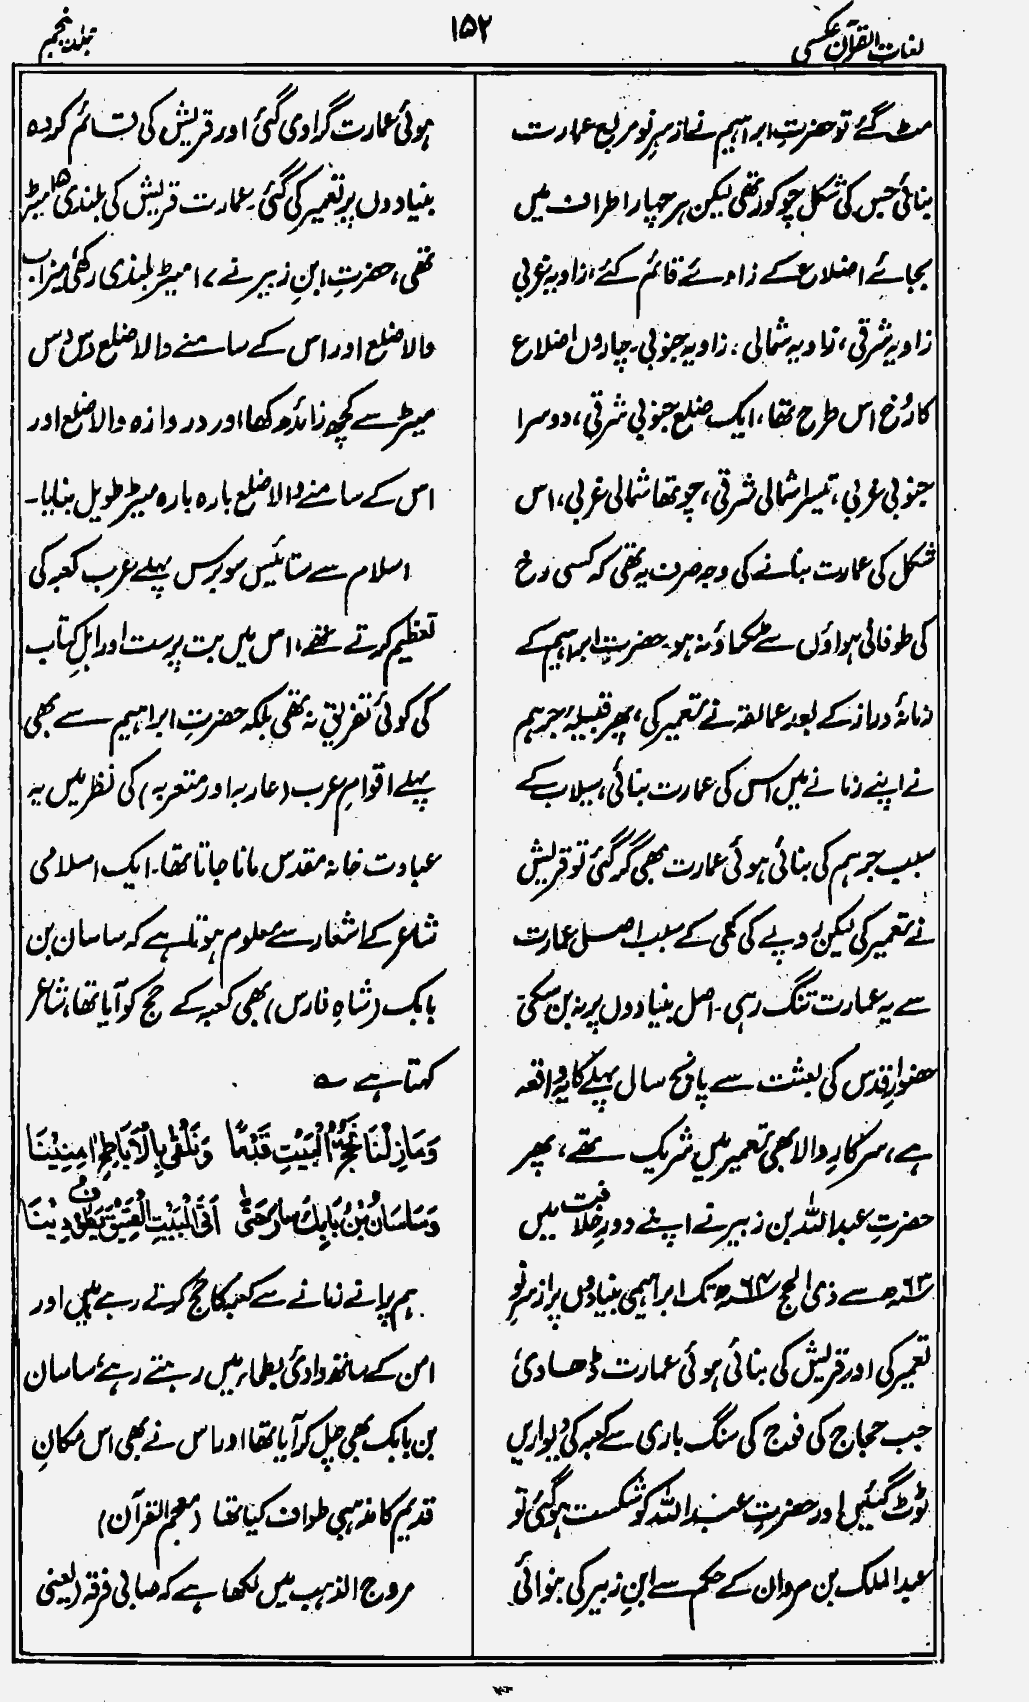 لغات القرآن عکسی
۱۵۲
جلد پنجم
مٹ گئے تو حضرتِ ابراہیم نے از سرِ نو مربع عمارت
بنائی جس کی شکل چوکور تھی لیکن ہر چہار اطراف میں
بجائے اضلاع کے زاویے قائم کئے، زاویہ غربی
زاویہ شرقی، زاویہ شمالی، زاویہ جنوبی۔ چاروں اضلاع
کا رُخ اس طرح تھا، ایک ضلع جنوبی شرقی، دوسرا
جنوبی غربی، تیسرا شمالی شرقی، چوتھا شمالی غربی، اس
شکل کی عمارت بنانے کی وجہ صرف یہ تھی کہ کسی رخ
کی طوفانی ہواؤں سے ٹکراؤ نہ ہو۔ حضرتِ ابراہیم کے
زمانۂ دراز کے بعد عمالقہ نے تعمیر کی، پھر قبیلۂ جرہم
نے اپنے زمانے میں اس کی عمارت بنائی، سیلاب کے
سبب جرہم کی بنائی ہوئی عمارت بھی گر گئی تو قریش
نے تعمیر کی لیکن روپے کی کمی کے سبب اصل عمارت
سے یہ عمارت تنگ رہی۔ اصل بنیادوں پر نہ بن سکی
حضورِ اقدس کی بعثت سے پانچ سال پہلے کا یہ واقعہ
ہے، سرکارِ والا بھی تعمیر میں شریک تھے، پھر
حضرتِ عبداللہ بن زبیر نے اپنے دورِ خلافت میں
۶۳ھ سے ذی الحج ۶۴ھ تک ابراہیمی بنیادوں پر از سرِ نو
تعمیر کی اور قریش کی بنائی ہوئی عمارت ڈھا دی
جب حجاج کی فوج کی سنگ باری سے کعبہ کی دیواریں
ٹوٹ گئیں اور حضرتِ عبداللہ کو شکست ہو گئی تو
عبدالملک بن مروان کے حکم سے ابنِ زبیر کی بنوائی
ہوئی عمارت گرا دی گئی اور قریش کی قائم کردہ
بنیادوں پر تعمیر کی گئی۔ عمارت قریش کی بلندی ۱۵ میٹر
تھی، حضرتِ ابنِ زبیر نے ۱۷ میٹر بلندی رکھی میزاب
والا ضلع اور اس کے سامنے والا ضلع دس دس
میٹر سے کچھ زائد رکھا اور دروازہ والا ضلع اور
اس کے سامنے والا ضلع بارہ بارہ میٹر طویل بنایا۔
اسلام سے ستائیس سو برس پہلے عرب کعبہ کی
تعظیم کرتے تھے، اس میں بت پرست اور اہلِ کتاب
کی کوئی تفریق نہ تھی بلکہ حضرتِ ابراہیم سے بھی
پہلے اقوامِ عرب (عاربہ اور متعربہ) کی نظر میں یہ
عبادت خانہ مقدس مانا جاتا تھا۔ ایک اسلامی
شاعر کے اشعار سے معلوم ہوتا ہے کہ ساسان بن
بابک (شاہِ فارس) بھی کعبہ کے حج کو آیا تھا، شاعر
کہتا ہے ؎
وَمَا زِلْنَا نَحُجُّ الْبَيْتَ قَدْمًا وَنَلْقٰى بِالْاَبَاطِحِ اٰمِنِيْنَا
وَسَاسَانُ بْنُ بَابَكَ سَارَ حَتّٰى اَتَى الْبَيْتَ الْعَتِيْقَ يَطُوْفُ دِيْنَا
ہم پرانے زمانے سے کعبہ کا حج کرتے رہے ہیں اور
امن کے ساتھ وادیٔ بطحاء میں رہتے رہے، ساسان
بن بابک بھی چل کر آیا تھا اور اس نے بھی اس مکانِ
قدیم کا مذہبی طواف کیا تھا (معجم القرآن)
مروج الذہب میں لکھا ہے کہ صابی فرقہ (یعنی